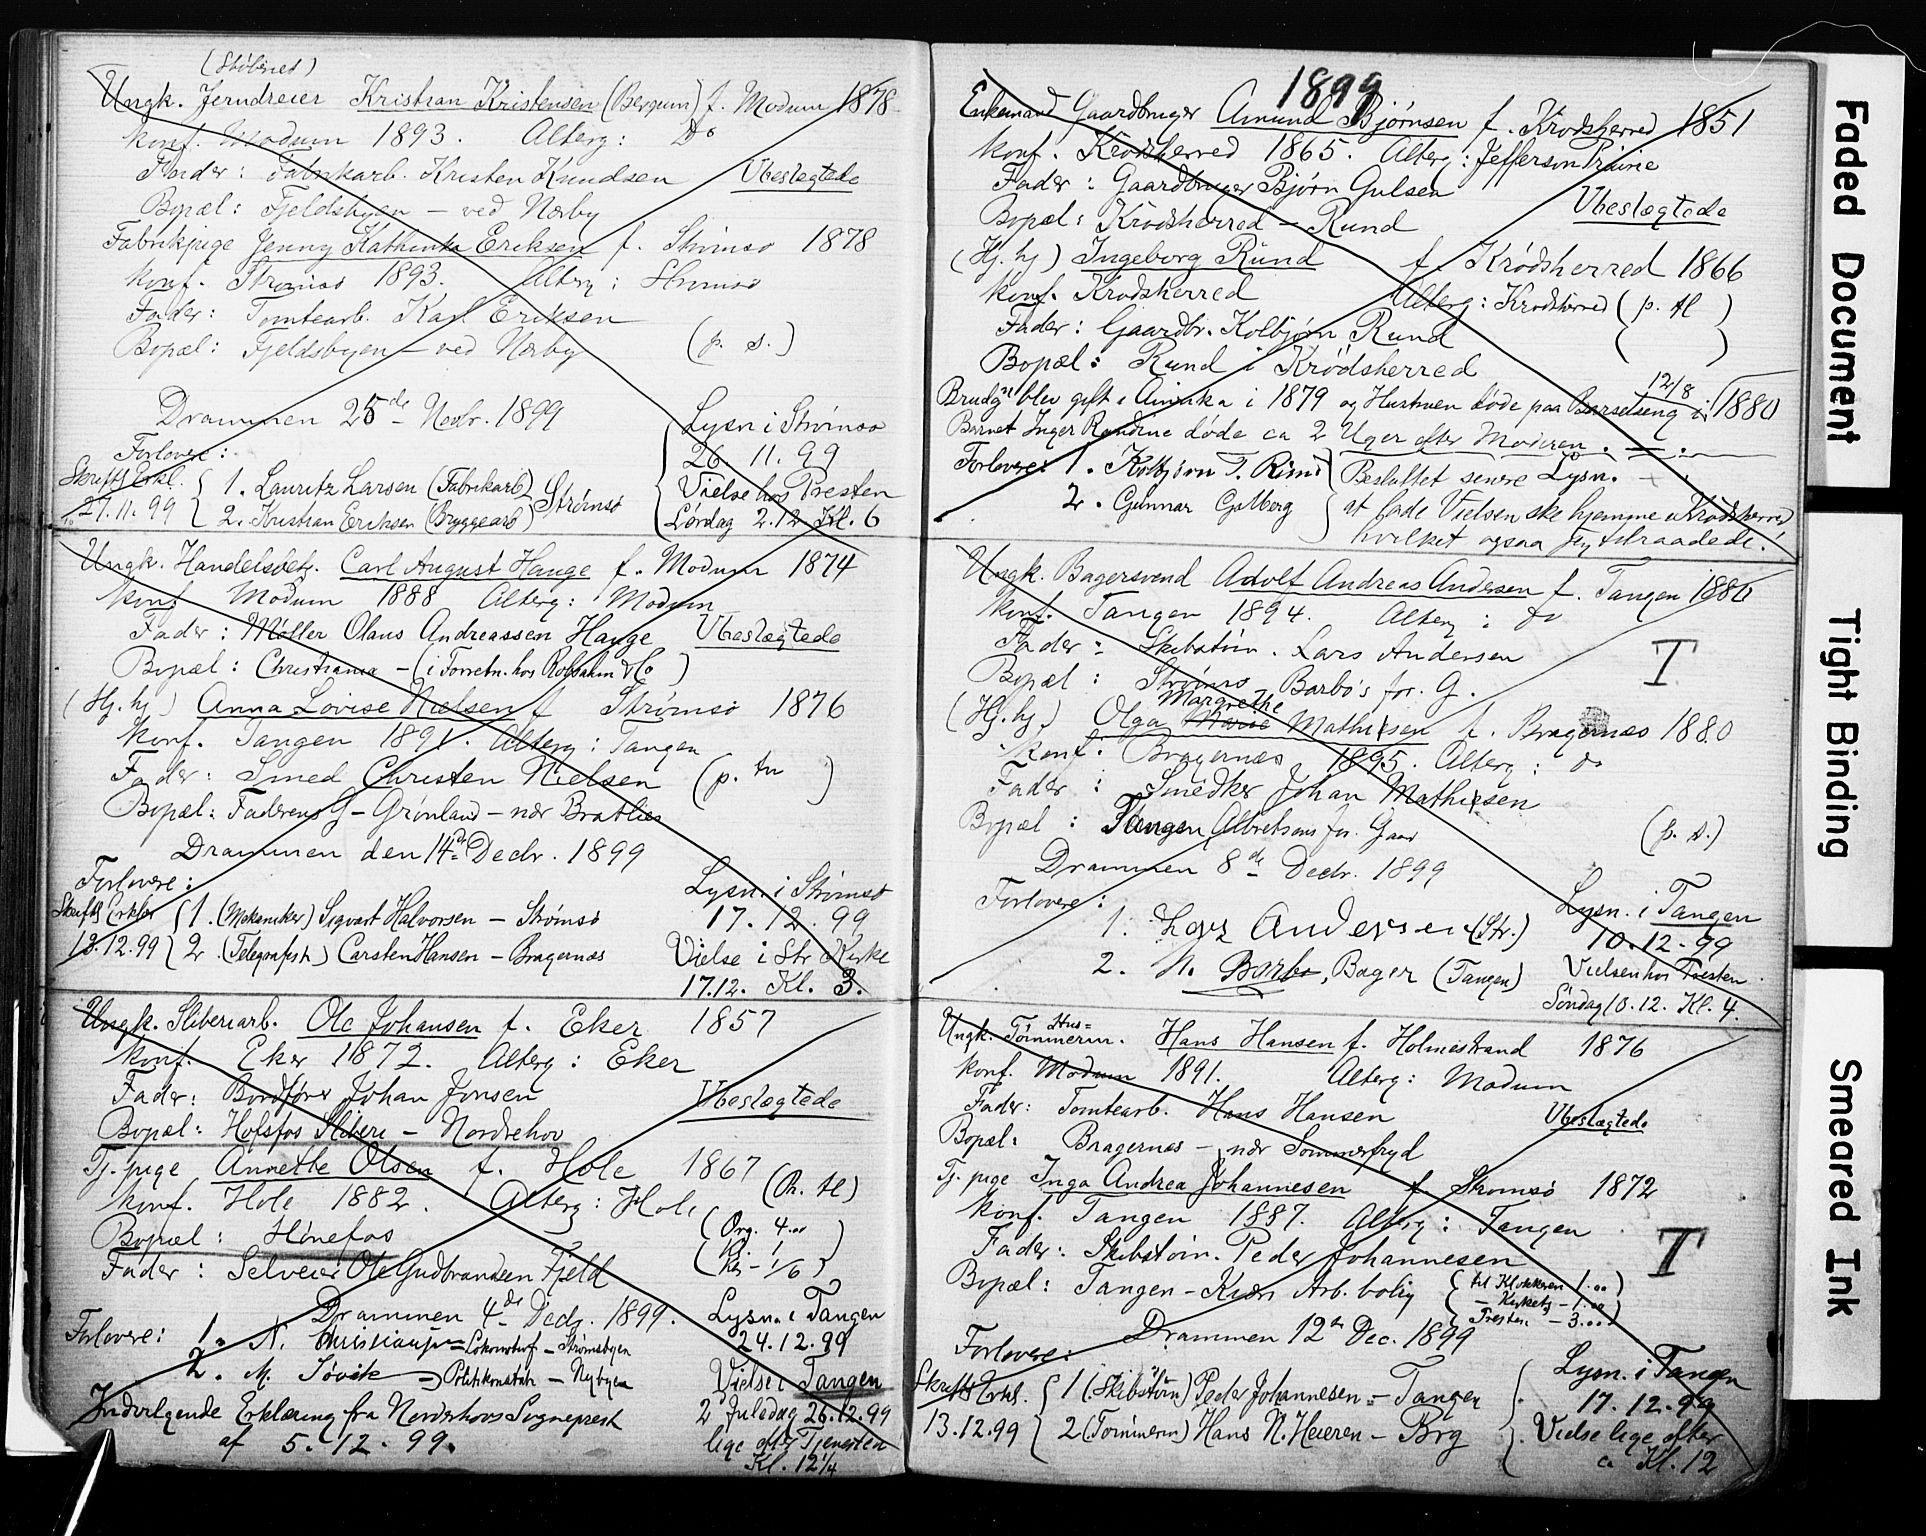 (Støberiet)
Ungk. Jerndreier Kristian Kristensen (Bergum) f. Modum 1878
Konf. Modum 1893. Alterg: Do
Fader: Fabrikarb. Kristen Knudsen Ubeslægtede
Bopæl: Fjeldsbyen - ved Nærby
Fabrikpige Jenny Kathinka Eriksen f. Strømsø 1878
Konf. Strømsø 1893. Alterg: Strømsø
Fader: Tomtearb. Karl Eriksen
Bopæl: Fjeldsbyen - ved Nærby (p. s.)
Drammen 25de Novbr. 1899
Lysn i Strømsø
Forlovere: 26 11. 99
Skriftl Erkl. 1. Lauritz Larsen (Fabrikarb) Strømsø Vielse hos Presten
27.11.99 2. Kristian Eriksen (Bryggearb) Lørdag 2.12. Kl. 6
Ungk. Handelsbetj. Carl August Hauge f. Modum 1874
Konf Modum 1888 Alterg: Modum
Fader: Møller Olaus Andreassen Hauge Ubeslægtede
Bopæl: Christiania - (i Forretn. hos Rolfsahm & Co)
(Hj. hj) Anna Lovise Nielsen f Strømsø 1876
Konf. Tangen 1891. Alterg: Tangen
Fader: Smed Christen Nielsen (p. tn)
Bopæl: Faderens G - Grønland - nær Bratlies
Drammen den 14de Decbr. 1899
Forlovere: Lysn. i Strømsø
17.12.99
Skriftl Erklær 1. (Mekaniker) Sigvart Halvorsen - Strømsø
18.12.99 2. (Telegrafist) Carsten Hansen - Bragernæs Vielse i Str Kirke
17.12. Kl. 3.
Ungk. Sliberiarb. Ole Johansen f. Eker 1857
Konf. Eker 1872. Alterg: Eker
Fader: Bordfører Johan Jonsen Ubeslægtede
Bopæl: Hofsfos Sliberi - Norderhov
Tj. pige Annette Olsen f. Hole 1867
Konf. Hole 1882. Alterg: Hole
Bopæl: Hønefos (Org. 4.00
Fader: Selveier Ole Gudbrandsen Fjeld
Drammen 4de Decbr. 1899. Lysn. i Tangen
Forlovere: 1. N. Christiansen - Lokomotivf - Strømsbyen 24.12.99
2. M. Søvik - Politikonstab - Nybyen Vielse i Tangen
Indvilgende Erklæring fra Norderhovs Sogneprest 2 Juledag 26.12.99
af 5.12.99. lige efter Tjenesten
Kl. 12¼
1899
Enkemand Gaardbruger Amund Bjørnsen f. Krødsherred 1851
Konf. Krødsherred 1865. Alterg: Jefferson Prairie
Fader: Gaardbruger Bjørn Gulsen
Bopæl: Krødsherred - Rund Ubeslægtede
(Hj. hj) Ingeborg Rund f. Krødsherred 1866
Konf. Krødsherred Alterg: Krødsherred (p. tl)
Fader: Gaardbr. Kolbjørn Rund
Bopæl: Rund i Krødsherred
Brudg blev gift i Amerika i 1879 og Hustruen døde paa Barselseng 12/8 1880
Barnet Inger Randine døde ca 2 Uger efter Moderen.
Forlovere: 1. Kolbjørn T. Rund Besluttet senere Lysn.
2. Gunnar Gulberg at lade Vielsen ske hjemme i Krødsherred
hvilket ogsaa jeg tilraadede!
Ungk. Bagersvend Adolf Andreas Andersen f. Tangen 1880
Konf. Tangen 1894. Alterg: do
Fader: Skibstøm. Lars Andersen T
Bopæl: Strømsø Barbo's for. G.
Margrethe
(Hj. hj.) Olga Marie Mathisen f. Bragernæs 1880
Konf: Bragernæs 1895. Alterg: do
Fader: Smedker Johan Mathisen
Bopæl: Tangen Albretsens for. Gaar (p. s.)
Drammen 8de Decbr. 1899
Forlovere: Lysn. i Tangen
1. Lars Andersen (Str.) 10.12.99
2. N. Barbo, Bager (Tangen) Vielsen hos Presten
Søndag 10.12. Kl. 4.
Hus=
Ungk. Tømmerm. Hans Hansen f. Holmestrand 1876
Konf. Modum 1891. Alterg: Modum
Fader: Tomtearb. Hans Hansen Ubeslægtede
Bopæl: Bragernæs - nær Sommerfryd
Tj. pige Inga Andrea Johannesen f. Strømsø 1872
Konf. Tangen 1887. Alterg: Tangen
Fader: Skibstøm. Peder Johannesen T
Bopæl: Tangen - Kiøs Arb. bolig (til Klokkeren 1.00)
- Kirketj - 1.00
Presten - 3.00
Drammen 12te Dec. 1899
Forlovere: Lysn. i Tangen
Skriftl Erkl. 1 (Skibstøm) Peder Johannesen = Tangen 17.12.99
13.12.99 2 (Tømmerm) Hans N. Heieren - Brg Vielse lige efter
ca Kl. 12
Faded Document
Tight Binding
Smeared Ink